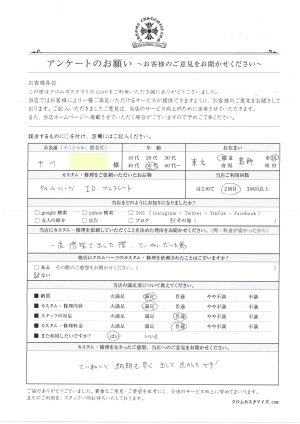 アンケートのお願い ～お客様のご意見をお聞かせください～
お客様各位
この度はクロムカスタマイズ.comをご利用いただき誠にありがとうございました。
当店ではお客様により一層ご満足いただけるサービスが提供できますように、お客様のご意見をお聞きして
おります。ご記入いただきましたご意見は、当店のサービスの向上のために活用させていただきます。
また、当店ホームページへ掲載させていただく場合がございますので予めご了承ください。
該当するものに○を付け、空欄にはご記入ください。
お名前（イニシャル、匿名可） 年 齢 お住まい
様
10代 20代 30代
40代 50代 60代～
東京 都道府県 葛飾 市区町村
カスタム・修理をご依頼いただいたお品物 当店ご利用回数
クロムハーツ ID ブレスレット はじめて 2回目 3回目以上
当店をどのようにお知りになりましたか？
google検索 yahoo検索 SNS（Instagram・Twitter・TikTok・Facebook）
友人の紹介 広告 その他（ ）
当店にカスタム・修理を依頼していただくことを決めた理由をお聞かせください。（例：料金が安かったから）
一度 修理で出した際、ていねいだった為
他店にクロムハーツのカスタム・修理を依頼されたことはございますか？
ある その際のご感想をお聞かせください。（ ）
ない
当店の満足度について教えてください。
納期 大満足 満足 普通 やや不満 不満
カスタム・修理内容 大満足 満足 普通 やや不満 不満
スタッフの対応 大満足 満足 普通 やや不満 不満
カスタム・修理料金 大満足 満足 普通 やや不満 不満
また利用したいですか？ はい いいえ
カスタム・修理をなさったご感想、当店へのご意見をお聞かせください。
ていねいで 納期も早く 出して良かったです!
ご協力ありがとうございました。貴重なご意見・ご要望を参考にし、今後のサービス向上に努めてまいります。
またのご利用を、スタッフ一同お待ちいたしております。
クロムカスタマイズ.com